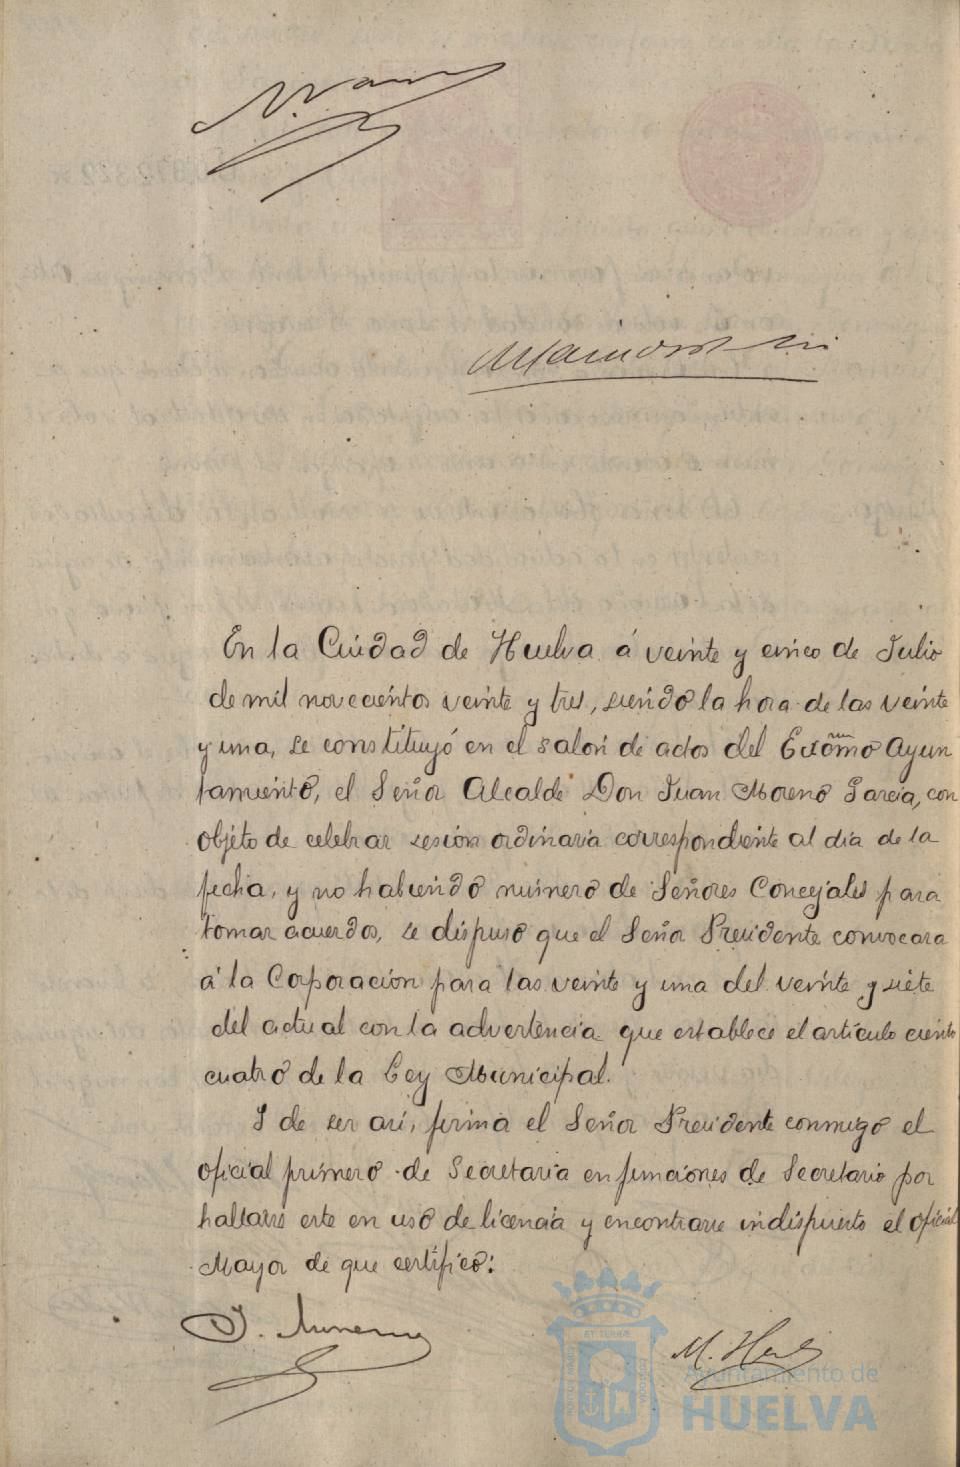 En la Ciudad de Huelva á veinte y cinco de Julio
de mil novecientos veinte y tres, siendo la hora de las veinte
y una, se constituyó en el salón de actos del Excmo Ayun
tamiento, el Señor Alcalde Don Juan Moreno García, con
objeto de celebrar sesión ordinaria correspondiente al día de la
fecha, y no habiendo número de Señores Concejales para
tomar acuerdos, se dispuso que el Señor Presidente convocara
á la Corporación para las veinte y una del veinte y siete
del actual con la advertencia que establece el artículo ciento
cuatro de la Ley Municipal.
Y de ser así, firma el Señor Presidente conmigo el
oficial primero de Secretaría en funciones de Secretario por
hallarse este en uso de licencia y encontrarse indispuesto el oficial
Mayor de que certifico:
J. Moreno
M.
Ayuntamiento de
HUELVA